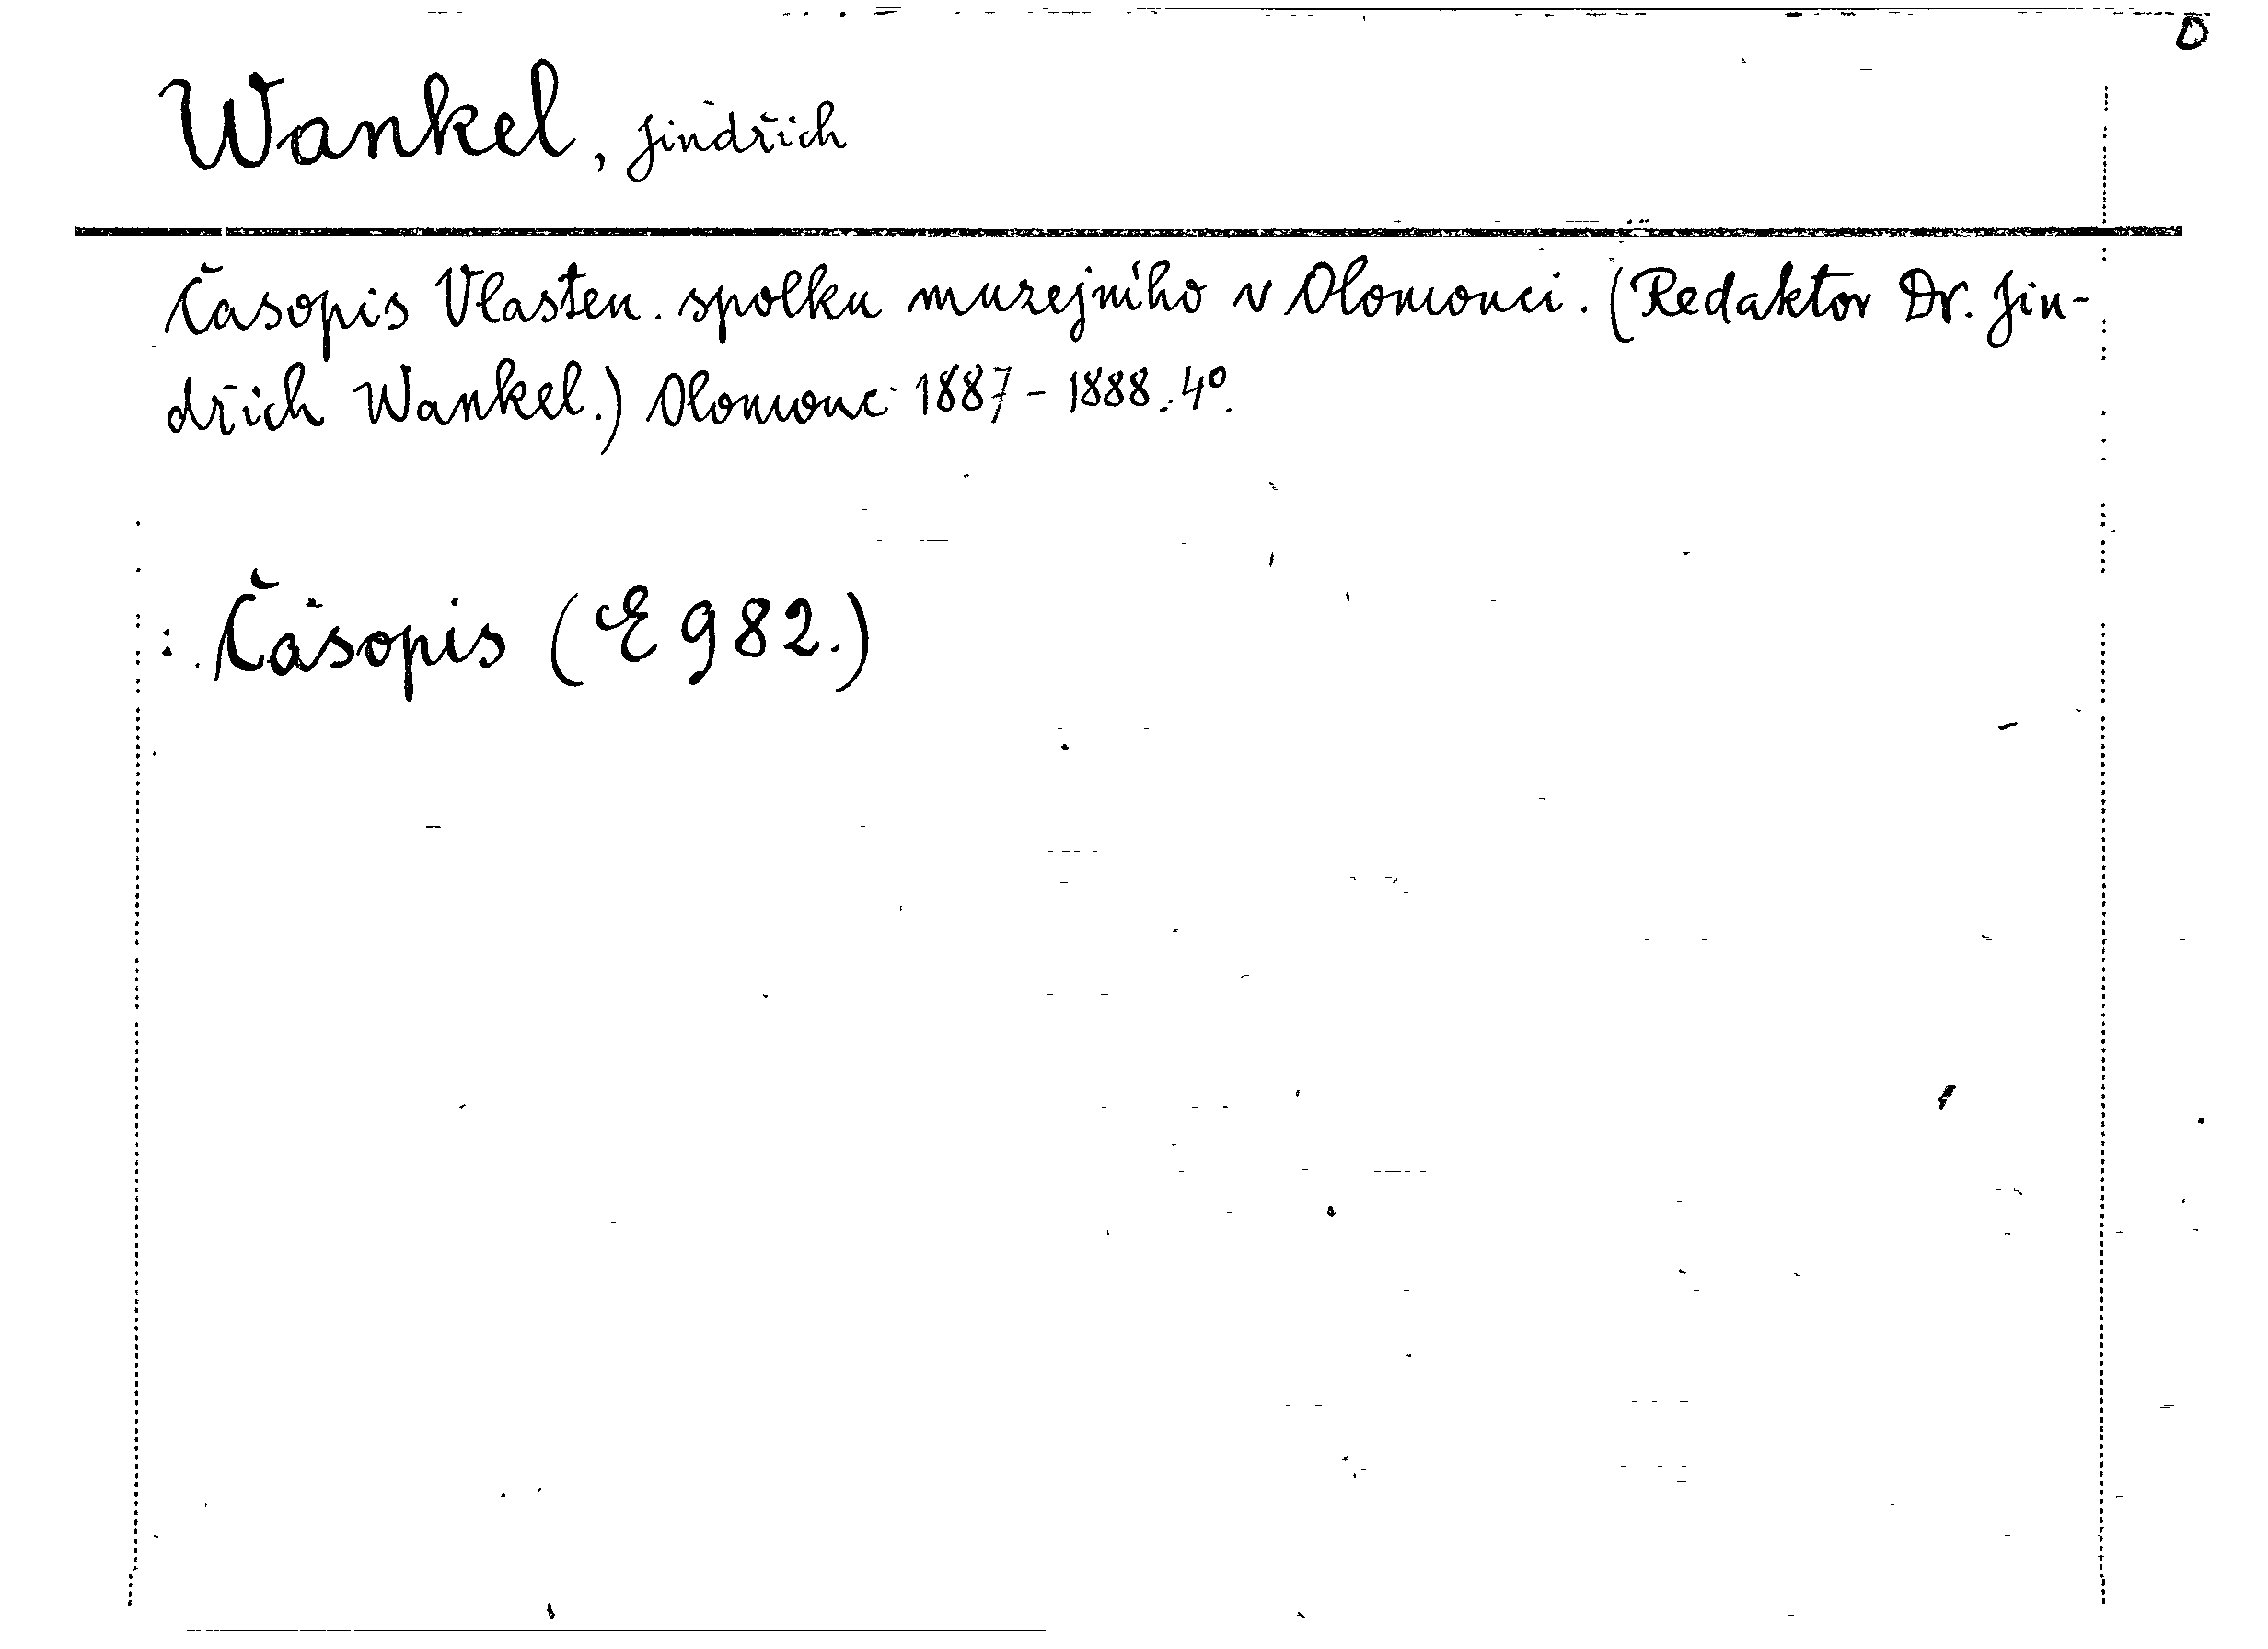 Wankel, Jindřich
Časopis Vlasten. spolku muzejního v Olomouci. (Redaktor Dr. Jin-
dřich Wankel.) Olomouc 1887-1888. 4°.
Časopis (E 982.)